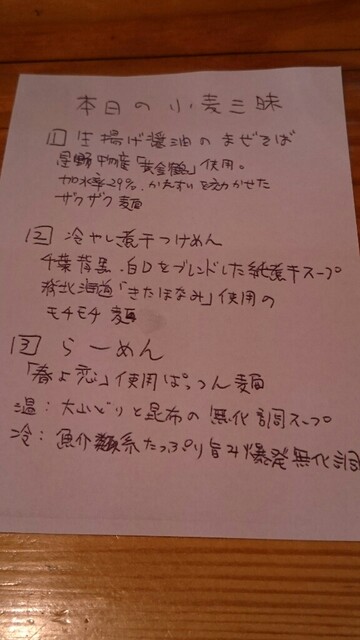 本日の小麦三昧
1 生揚げ醤油のまぜそば
星野物産「黄金鶴」使用。
加水率29%、かんすいを効かせた
ザクザク麺
2 冷やし煮干つけめん
千葉背黒、白口をブレンドした純煮干スープ
北海道「きたほなみ」使用の
モチモチ麺
3 らーめん
「春よ恋」使用ぱっつん麺
温:大山どりと昆布の無化調スープ
冷:魚介類系たっぷり旨み爆発無化調